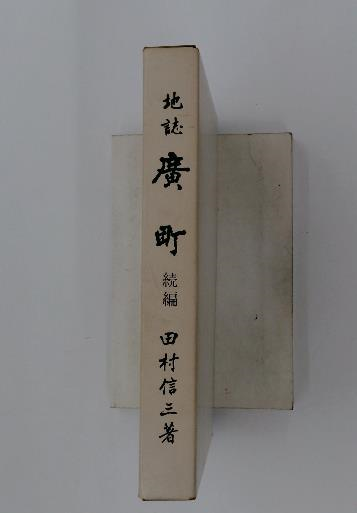 地誌 廣町 続編 田村信三著